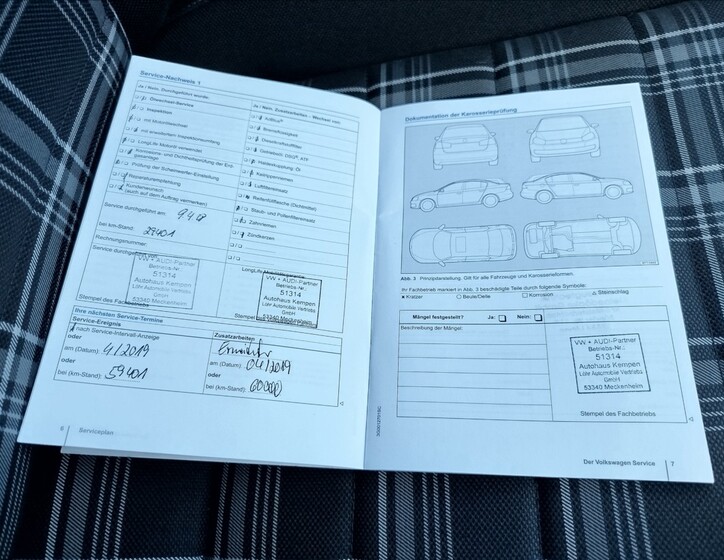 Service-Nachweis 1
Ja / Nein, Durchgeführt wurde:
Ölwechsel-Service
Inspektion
mit Motorölwechsel
mit erweitertem Inspektionsumfang
LongLife Motoröl verwendet
Prüfung der Scheinwerfer-Einstellung
Reparaturempfehlung
(auch auf dem Auftrag vermerken)
Service durchgeführt am: 9.4.18
bei km-Stand: 29401
Rechnungsnummer:
Service durchgeführt von:
VW • AUDI-Partner
Betriebs-Nr.:
51314
Autohaus Kempen
GmbH
53340 Meckenheim
Stempel des Fachbetriebs
Ja / Nein, Zusatzarbeiten - Wechsel von:
Bremsflüssigkeit
Dieselkraftstofffilter
Luftfiltereinsatz
Reifenfüllflasche (Dichtmittel)
Staub- und Pollenfiltereinsatz
Zahnriemen
Zündkerzen
VW • AUDI-Partner
Betriebs-Nr.:
51314
Autohaus Kempen
GmbH
53340 Meckenheim
Ihre nächsten Service-Termine
Service-Ereignis
nach Service-Intervall-Anzeige
oder
am (Datum): 4/2019
oder
bei (km-Stand): 59401
Zusatzarbeiten:
am (Datum): 04/2019
oder
bei (km-Stand): 60000
6
Serviceplan
Dokumentation der Karosserieprüfung
Abb. 3 Prinzipdarstellung. Gilt für alle Fahrzeuge und Karosserieformen.
Ihr Fachbetrieb markiert in Abb. 3 beschädigte Teile durch folgende Symbole:
Kratzer
Beule/Delle
Korrosion
Steinschlag
Mängel festgestellt?
Ja:
Nein:
Beschreibung der Mängel:
VW • AUDI-Partner
Betriebs-Nr.:
51314
Autohaus Kempen
GmbH
53340 Meckenheim
Stempel des Fachbetriebs
Der Volkswagen Service
7